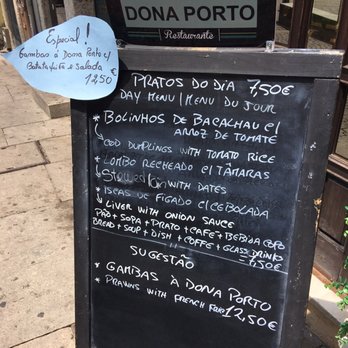 DONA PORTO
Restaurante
Especial!
Gambas à Dona Porto c/
Batata frita e Salada
12,50 €
PRATOS DO DIA 7,50€
DAY MENU / MENU DU JOUR
* BOLINHOS DE BACALHAU c/
ARROZ DE TOMATE
COD DUMPLINGS WITH TOMATO RICE
* LOMBO RECHEADO c/ TÂMARAS
WITH DATES
* ISCAS DE FÍGADO C/CEBOLADA
LIVER WITH ONION SAUCE
PÃO + SOPA + PRATO + CAFÉ + BEBIDA COPO
BREAD + SOUP + DISH + COFFE + GLASS DRINK
= 7,50€
SUGESTÃO
* GAMBAS À DONA PORTO
* PRAWNS WITH FRENCH FRIES
12,50€